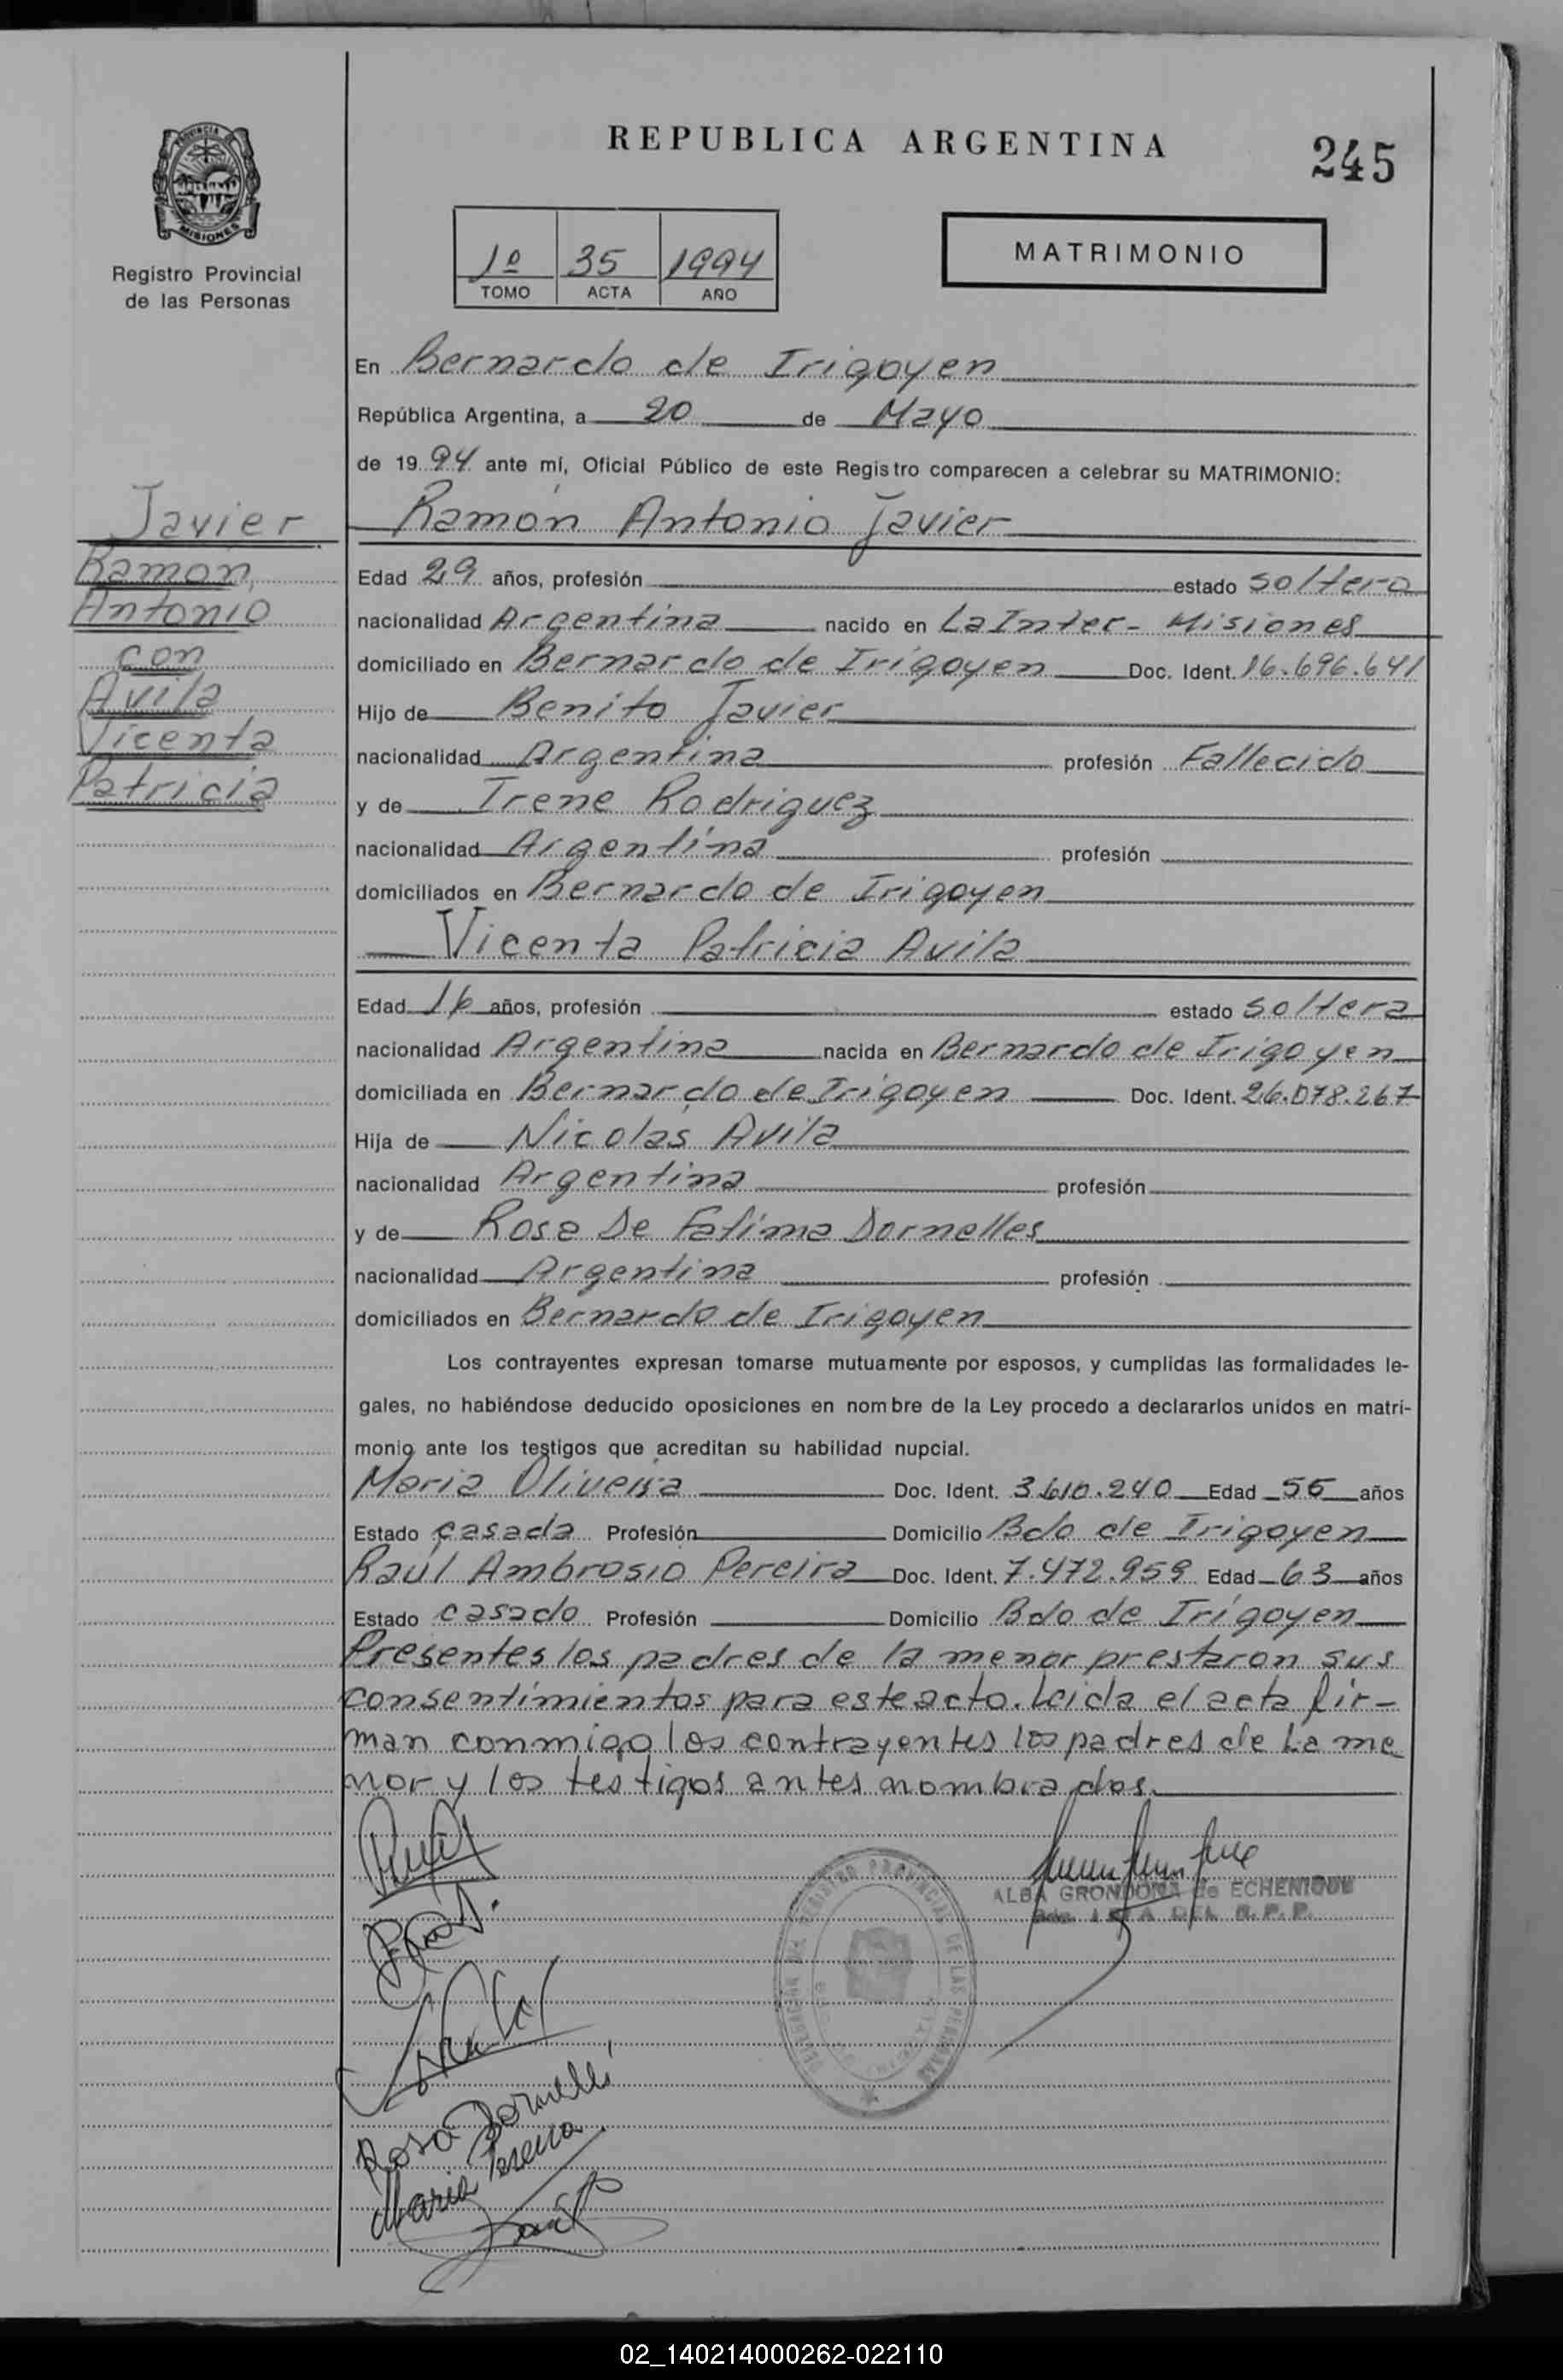 REPUBLICA ARGENTINA
245
PROVINCIA
MISIONES
Registro Provincial
de las Personas
1º 35 1994
TOMO ACTA AÑO
MATRIMONIO
En Bernardo de Irigoyen
República Argentina, a 20 de Mayo
de 1994 ante mí, Oficial Público de este Registro comparecen a celebrar su MATRIMONIO:
Javier
Ramon
Antonio
con
Avila
Vicenta
Patricia
Ramón Antonio Javier
Edad 29 años, profesión estado soltero
nacionalidad Argentina nacido en La Inter- Misiones
domiciliado en Bernardo de Irigoyen Doc. Ident. 16.696.641
Hijo de Benito Javier
nacionalidad Argentina profesión Fallecido
y de Irene Rodriguez
nacionalidad Argentina profesión
domiciliados en Bernardo de Irigoyen
Vicenta Patricia Avila
Edad 16 años, profesión estado soltera
nacionalidad Argentina nacida en Bernardo de Irigoyen
domiciliada en Bernardo de Irigoyen Doc. Ident. 26.078.267
Hija de Nicolas Avila
nacionalidad Argentina profesión
y de Rosa De Fatima Dornelles
nacionalidad Argentina profesión
domiciliados en Bernardo de Irigoyen
Los contrayentes expresan tomarse mutuamente por esposos, y cumplidas las formalidades le-
gales, no habiéndose deducido oposiciones en nombre de la Ley procedo a declararlos unidos en matri-
monio ante los testigos que acreditan su habilidad nupcial.
Maria Oliveira Doc. Ident. 3.610.240 Edad 56 años
Estado casada Profesión Domicilio Bdo de Irigoyen
Raúl Ambrosio Pereira Doc. Ident. 7.472.959 Edad 63 años
Estado casado Profesión Domicilio Bdo de Irigoyen
Presentes los padres de la menor prestaron sus
consentimientos para este acto. Leida el acta fir-
man conmigo los contrayentes los padres de la me
nor y los testigos antes nombrados.
ALBA GRONDONA de ECHENIQUE
REGISTRO PROVINCIAL DE LAS PERSONAS
Rosa Dornelles
Maria Pereira
02_140214000262-022110